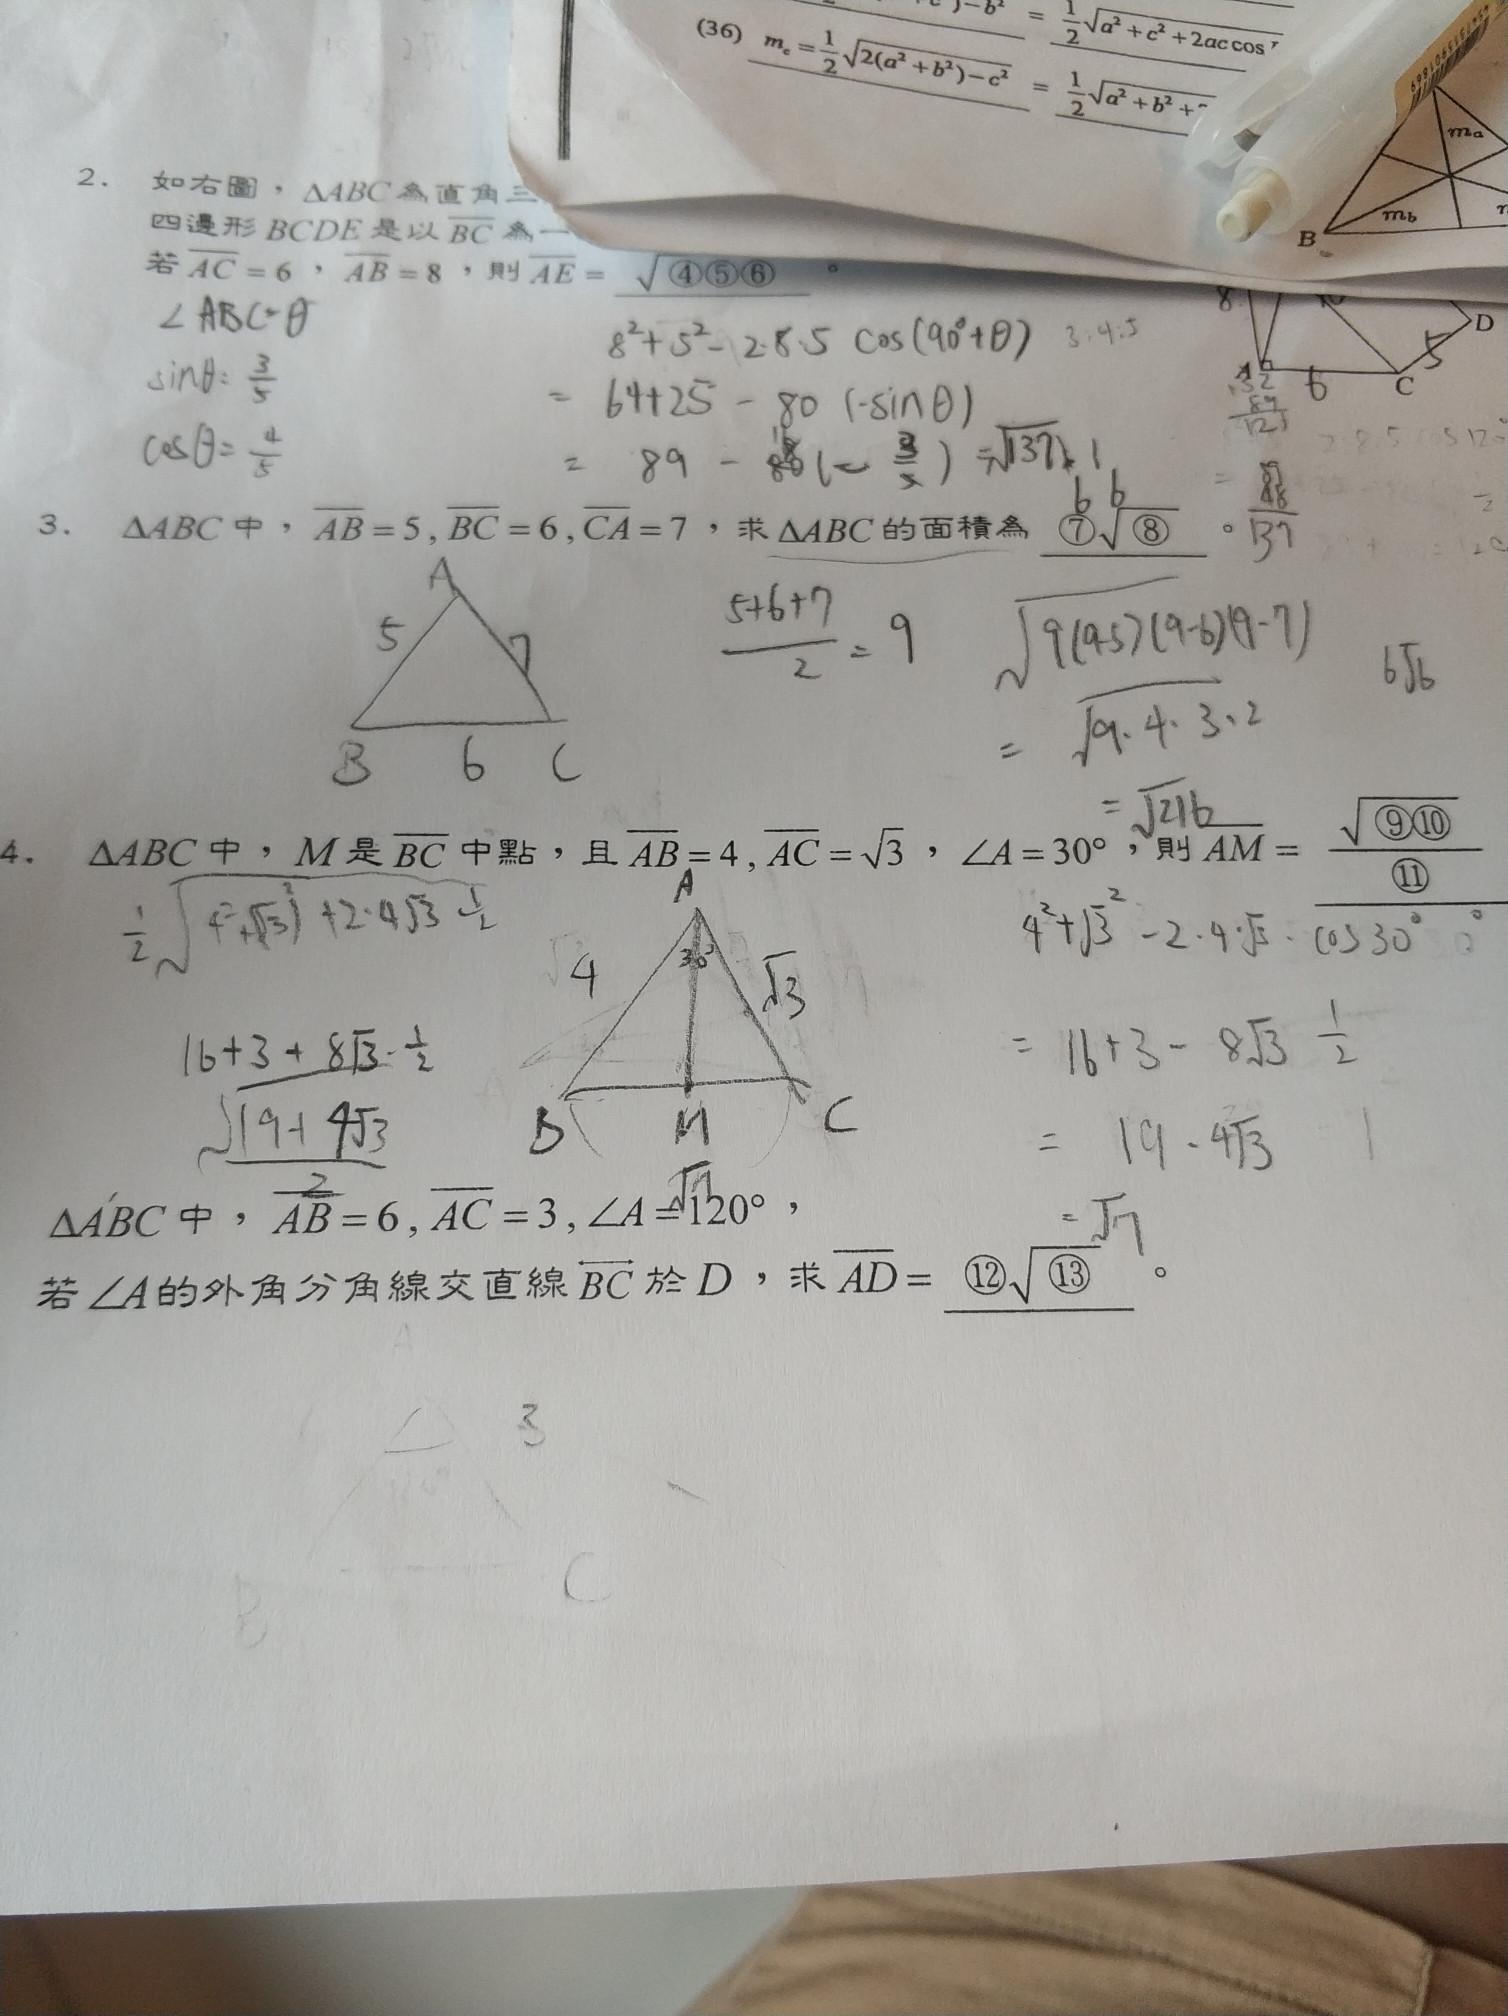 (36) mc = 1/2 √2(a² + b²) − c² = 1/2 √a² + b² +
= 1/2 √a² + c² + 2ac cos
ma
mb
B
2. 如右圖，ΔABC 為直角三
四邊形 BCDE 是以 BC 為一
若 AC = 6，AB = 8，則 AE = √④⑤⑥。
8
A
6
C
5
D
∠ABC=θ
sinθ= 3/5
cosθ= 4/5
8²+5²-2·8·5 cos(90°+θ)
3:4:5
= 64+25 - 80 (-sinθ)
= 89 - 80 (- 3/5) = √137
137
6 6
3. ΔABC 中，AB = 5, BC = 6, CA = 7，求 ΔABC 的面積為 ⑦√⑧。
A
5
7
B 6 C
5+6+7/2 = 9
√9(9-5)(9-6)(9-7)
= √9·4·3·2
= √216
6√6
4. ΔABC 中，M 是 BC 中點，且 AB = 4, AC = √3，∠A = 30°，則 AM = √⑨⑩/⑪
1/2 √4²+(√3)²+2·4√3·1/2
16+3+8√3·1/2
√19+4√3/2
A
30°
4
√3
B M C
√7
4²+√3²-2·4·√3·cos30°
= 16+3-8√3 1/2
= 19-4√3
= √7
ΔABC 中，AB = 6, AC = 3, ∠A = 120°，
若 ∠A 的外角分角線交直線 BC 於 D，求 AD = ⑫√⑬。
A
3
B
C